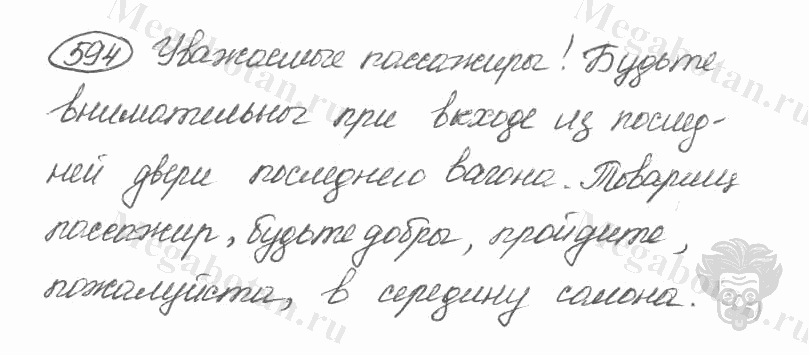 594 Уважаемые пассажиры! Будьте
внимательны при выходе из послед-
ней двери последнего вагона. Товарищ
пассажир, будьте добры, пройдите,
пожалуйста, в середину салона.
Megabotan.ru